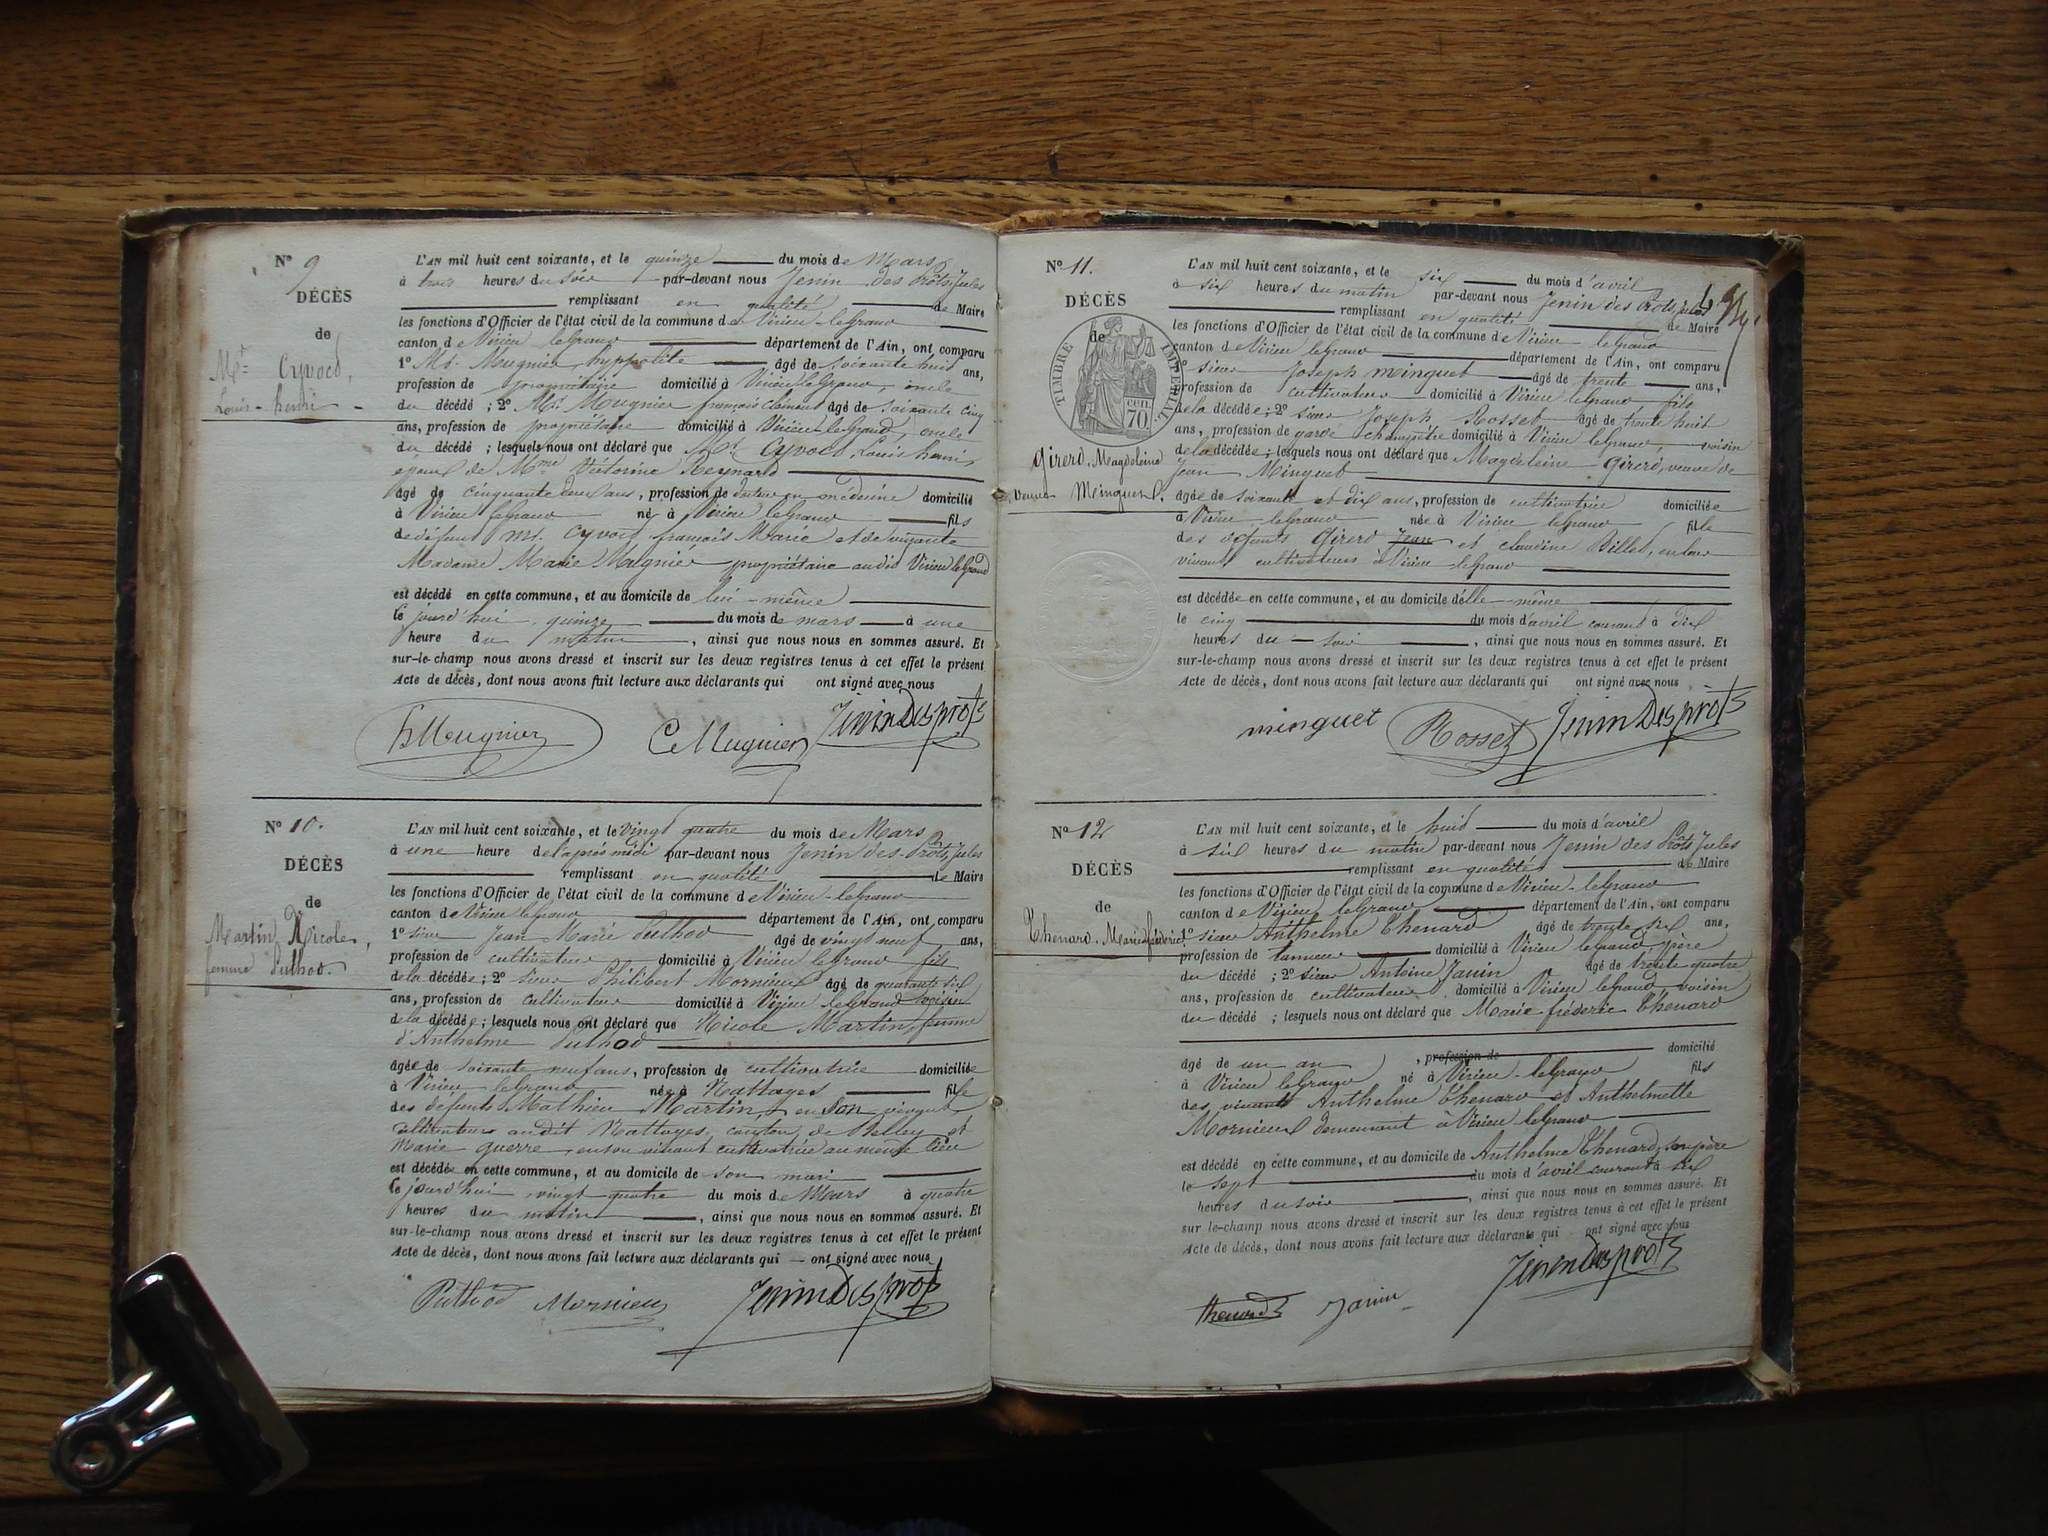 N° 9
DÉCÈS
de
Mr Cyvoct,
Louis-henri
L'AN mil huit cent soixante, et le quinze du mois de Mars
à trois heures du soir par-devant nous Jenin des Prôts, Jules
remplissant en qualité de Maire
les fonctions d'Officier de l'état civil de la commune de Virieu-leGrand
canton de Virieu leGrand département de l'Ain, ont comparu
1° Mr. Mugnier, hyppolite âgé de soixante huit ans,
profession de propriétaire domicilié à Virieu leGrand, oncle
du décédé ; 2° Mr Mugnier françois Clément âgé de soixante cinq
ans, profession de propriétaire domicilié à Virieu-le-Grand, oncle
du décédé ; lesquels nous ont déclaré que Mr Cyvoct, Louis henri,
époux de Mme Victorine Reynard
âgé de cinquante deux ans, profession de docteur en médecine domicilié
à Virieu leGrand né à Virieu leGrand fils
de défunt Mr. Cyvoct, françois Marie et de vivante
Madame Marie Mugnier propriétaire audit Virieu leGrand
est décédé en cette commune, et au domicile de lui-même
Ce jourd'hui, quinze du mois de mars à une
heure du matin, ainsi que nous nous en sommes assuré. Et
sur-le-champ nous avons dressé et inscrit sur les deux registres tenus à cet effet le présent
Acte de décès, dont nous avons fait lecture aux déclarants qui ont signé avec nous
hMugnier CMugnier Jenin Des prots
N° 10.
DÉCÈS
de
Martin, Nicole,
femme Puthod.
L'AN mil huit cent soixante, et le vingt quatre du mois de Mars
à une heure de l'après midi par-devant nous Jenin des Prôts, Jules
remplissant en qualité de Maire
les fonctions d'Officier de l'état civil de la commune de Virieu-leGrand
canton de Virieu leGrand département de l'Ain, ont comparu
1° sieur Jean Marie Puthod âgé de vingt neuf ans,
profession de cultivateur domicilié à Virieu leGrand fils
de la décédée ; 2° sieur Philibert Mornieux âgé de quarante six
ans, profession de cultivateur domicilié à Virieu leGrand voisin
de la décédée ; lesquels nous ont déclaré que Nicole Martin, femme
d'Anthelme Puthod
âgée de soixante neuf ans, profession de cultivatrice domiciliée
à Virieu leGrand née à Nattages fille
des défunts Mathieu Martin, en son vivant
cultivateur audit Nattages, canton de Belley et
Marie guerre, en son vivant cultivatrice au même lieu
est décédée en cette commune, et au domicile de son mari
Ce jourd'hui vingt quatre du mois de Mars à quatre
heures du matin, ainsi que nous nous en sommes assuré. Et
sur-le-champ nous avons dressé et inscrit sur les deux registres tenus à cet effet le présent
Acte de décès, dont nous avons fait lecture aux déclarants qui — ont signé avec nous
Puthod Mornieux Jenin Des prots
N° 11.
DÉCÈS
de
TIMBRE IMPERIAL
70 cen.
Girerd, Magdeleine
veuve Minguet.
L'AN mil huit cent soixante, et le six du mois d'avril
à six heures du matin par-devant nous Jenin des Prots, Jules
remplissant en qualité de Maire
les fonctions d'Officier de l'état civil de la commune de Virieu leGrand
canton de Virieu leGrand département de l'Ain, ont comparu
1° sieur Joseph Minguet âgé de trente ans,
profession de cultivateur domicilié à Virieu leGrand fils
de la décédée ; 2° sieur Joseph Rosset âgé de trente huit
ans, profession de garde champêtre domicilié à Virieu leGrand, voisin
de la décédée ; lesquels nous ont déclaré que Magdeleine Girerd, veuve de
Jean Minguet
âgée de soixante et dix ans, profession de cultivatrice domiciliée
à Virieu leGrand née à Virieu leGrand fille
des défunts Girerd Jean et claudine Billet, en leur
vivant cultivateurs à Virieu-leGrand
est décédée en cette commune, et au domicile d'elle-même
le cinq du mois d'avril courant à dix
heures du soir, ainsi que nous nous en sommes assuré. Et
sur-le-champ nous avons dressé et inscrit sur les deux registres tenus à cet effet le présent
Acte de décès, dont nous avons fait lecture aux déclarants qui ont signé avec nous
minguet Rosset Jenin Des prots
N° 12
DÉCÈS
de
Thenard, Marie fréderic
L'AN mil huit cent soixante, et le huit du mois d'avril
à six heures du matin par-devant nous Jenin des Prôts Jules
remplissant en qualité de Maire
les fonctions d'Officier de l'état civil de la commune de Virieu-leGrand
canton de Virieu leGrand département de l'Ain, ont comparu
1° sieur Anthelme Thenard âgé de trente six ans,
profession de tanneur domicilié à Virieu leGrand, père
du décédé ; 2° sieur Antoine Janin âgé de trente quatre
ans, profession de cultivateur domicilié à Virieu leGrand, voisin
du décédé ; lesquels nous ont déclaré que Marie fréderic Thenard
âgé de un an, profession de domicilié
à Virieu leGrand né à Virieu-leGrand fils
des vivants Anthelme Thenard et Anthelmette
Mornieux demeurant à Virieu leGrand
est décédé en cette commune, et au domicile de Anthelme Thenard, son père
le sept du mois d'avril courant à six
heures du soir, ainsi que nous nous en sommes assuré. Et
sur-le-champ nous avons dressé et inscrit sur les deux registres tenus à cet effet le présent
Acte de décès, dont nous avons fait lecture aux déclarants qui ont signé avec nous
thenard Janin Jenin Des prots